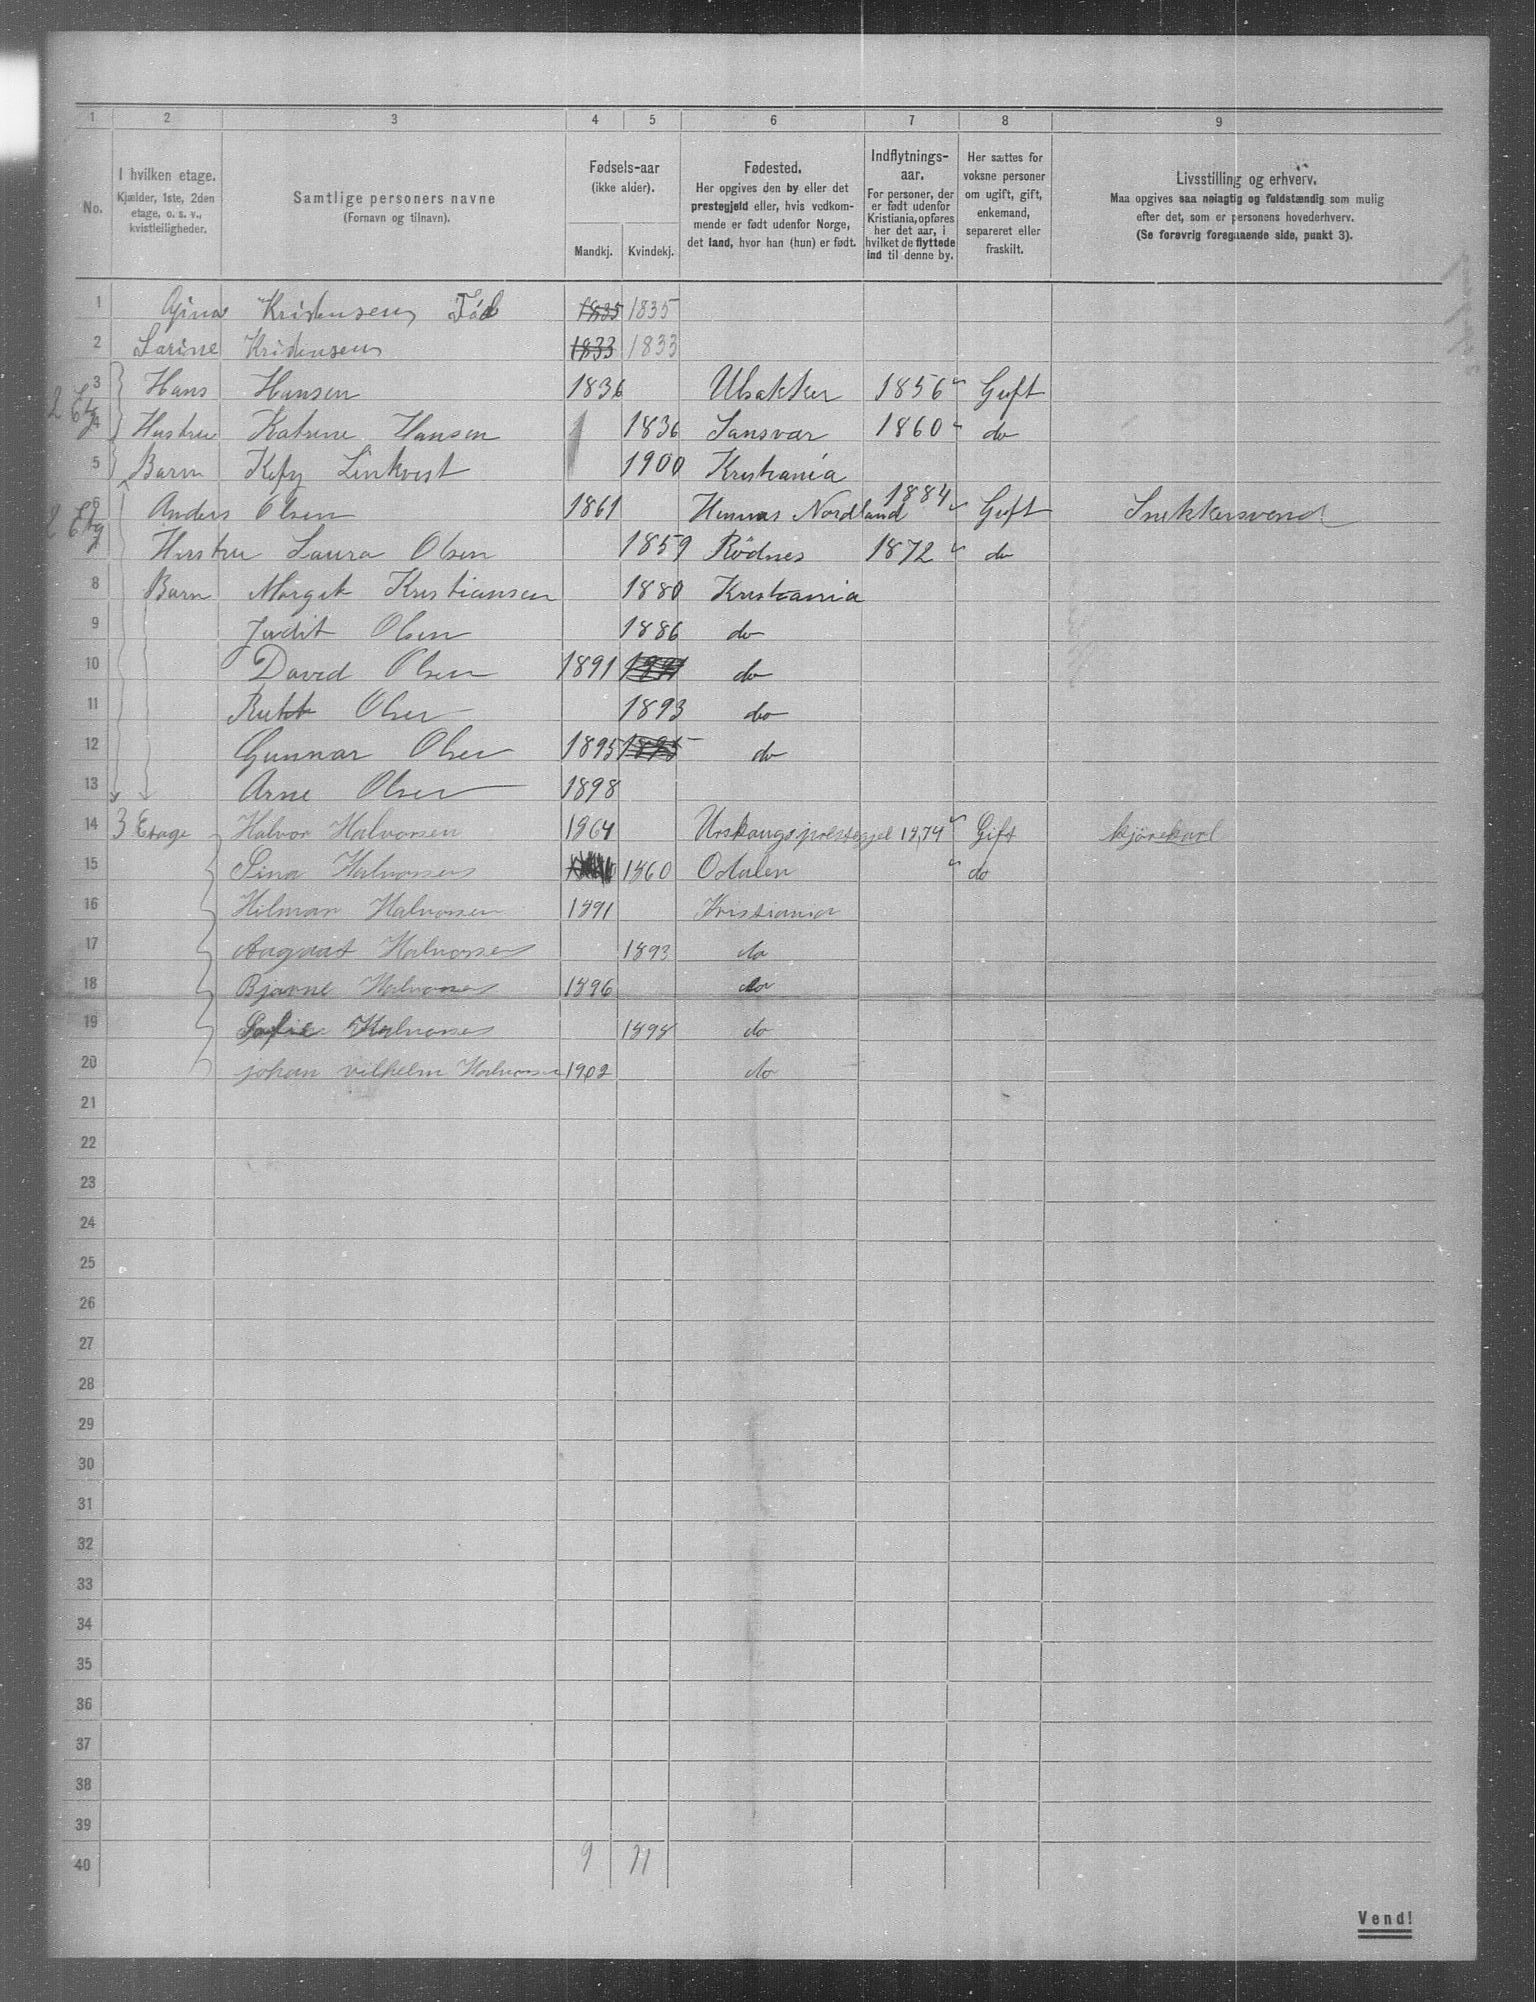 1 2 3 4 5 6 7 8 9
No.
I hvilken etage.
Kjælder, 1ste, 2den
etage, o. s. v.,
kvistleiligheder.
Samtlige personers navne
(Fornavn og tilnavn).
Fødsels-aar
(ikke alder).
Mandkj. Kvindekj.
Fødested.
Her opgives den by eller det
prestegjeld eller, hvis vedkom-
mende er født udenfor Norge,
det land, hvor han (hun) er født.
Indflytnings-
aar.
For personer, der
er født udenfor
Kristiania, opføres
her det aar, i
hvilket de flyttede
ind til denne by.
Her sættes for
voksne personer
om ugift, gift,
enkemand,
separeret eller
fraskilt.
Livsstilling og erhverv.
Maa opgives saa nøiagtig og fuldstændig som mulig
efter det, som er personens hovederhverv.
(Se forøvrig foregaaende side, punkt 3).
1 Gina Kristensen Föd 1835 1835
2 Larine Kristensen 1833 1833
2 Etg
3 Hans Hansen 1836 Ulsakker 1856 Gift
4 Hustru Katrine Hansen 1836 Sansvær 1860 do
5 Barn Linkvist 1900 Kristiania
2 Etg
6 Anders Olsen 1861 Nordland 1884 Gift Snekkersvend
7 Hustru Laura Olsen 1859 Rödnes 1872 do
8 Barn Margit Kristiansen 1880 Kristiania
9 Judit Olsen 1886 do
10 David Olsen 1891 1891 do
11 Rutt Olsen 1893 do
12 Gunnar Olsen 1895 1895 do
13 Arne Olsen 1898
14 3 Etage Halvor Halvorsen 1864 Urskougs prestegjel 1874 Gift kjörekarl
15 Sina Halvorsen 1860 Odalen do
16 Hilman Halvorsen 1891 Kristiania
17 Aagaat Halvorsen 1893 do
18 Bjarne Halvorsen 1896 do
19 Sofie Halvorsen 1898 do
20 johan vilhelm Halvorsen 1902 do
21
22
23
24
25
26
27
28
29
30
31
32
33
34
35
36
37
38
39
40 9 11
Vend!